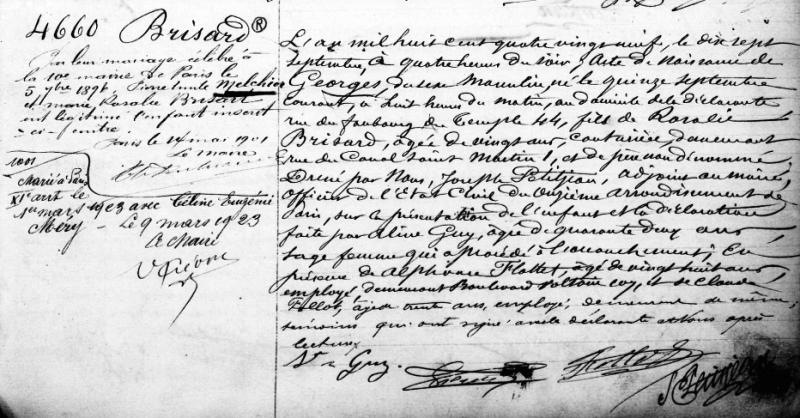 4660 Brisard
Par leur mariage célébré à
la 10e mairie de Paris le
5 9bre 1897, Pierre Emile Melchior
et Marie Rosalie Brisart
ont légitimé l'enfant inscrit
ci-contre.
Paris le 14 mai 1901
Le maire
Marié à Paris
XIe arrt le
1er mars 1923 avec Céline Eugénie
Mery - Le 9 mars 1923
Le Maire
L'an mil huit cent quatre vingt neuf, le dix sept
septembre, à quatre heures du soir. Acte de naissance de
Georges, du sexe masculin, né le quinze septembre
courant, à huit heures du matin, au domicile de la déclarante
rue du Faubourg du Temple 44, fils de Rosalie
Brisard, âgée de vingt ans, couturière, demeurant
rue du Canal Saint Martin 1, et de père non dénommé.
Dressé par Nous, Joseph Petitjean, adjoint au maire,
Officier de l'Etat Civil du Onzième arrondissement de
Paris, sur la présentation de l'enfant et la déclaration
faite par Aline Guy, âgée de quarante deux ans
sage femme qui a procédé à l'accouchement; En
présence de Alphonse Flottet, âgé de vingt huit ans,
employé, demeurant Boulevard Voltaire et de Claude
âgé de trente ans, employé, demeurant de même;
témoins qui ont signé avec la déclarante et Nous après
lecture.
Ve Guy.